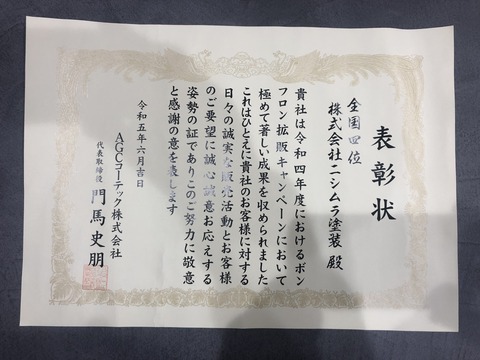 表彰状
全国四位
株式会社ニシムラ塗装 殿
貴社は令和四年度におけるボン
フロン拡販キャンペーンにおいて
極めて著しい成果を収められました
これはひとえに貴社のお客様に対する
日々の誠実な販売活動とお客様
のご要望に誠心誠意お応えする
姿勢の証でありこのご努力に敬意
と感謝の意を表します
令和五年六月吉日
AGCコーテック株式会社
代表取締役 門馬史朋